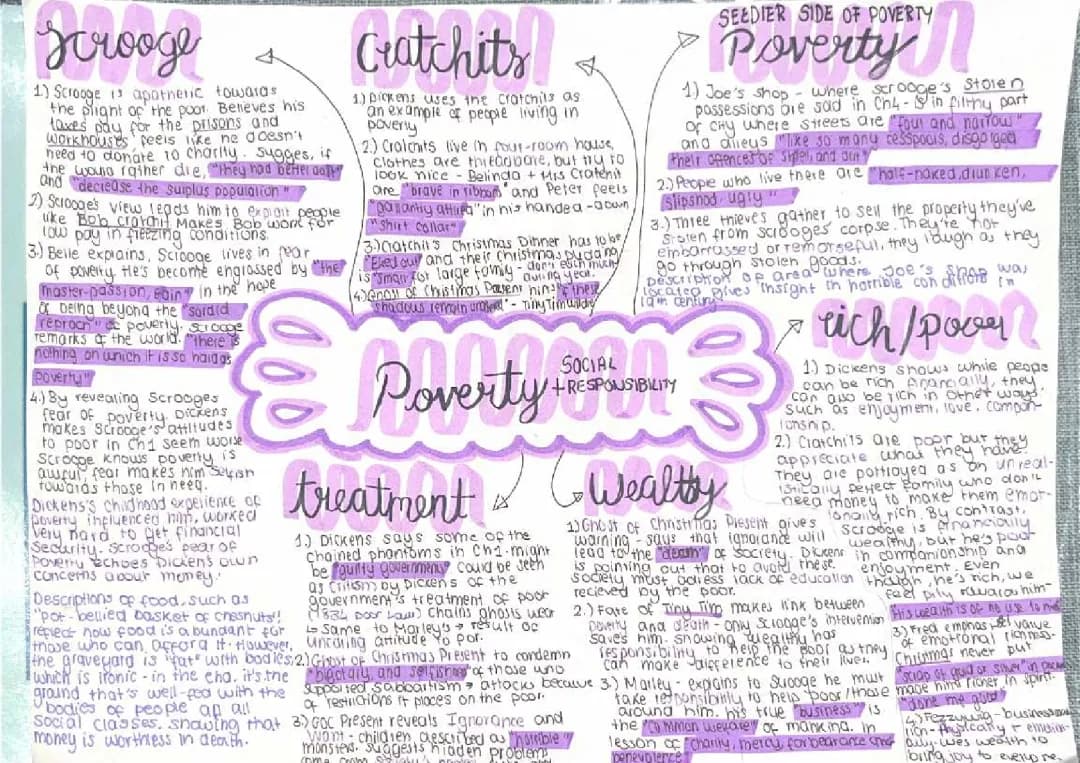 Scrooge
1.) Scrooge is apathetic towards
the plight of the poor. Believes his
taxes pay for the prisons and
workhouses, feels like he doesn't
need to donate to charity. Sugges, if
the would rather die, "they had better do it"
and "decrease the surplus population"
2) Scrooge's view leads him to exploit people
like Bob Cratchit. Makes Bob work for
low pay in freezing conditions.
3.) Belle explains, Scrooge lives in fear
of poverty. He's become engrossed by "the
master-passion, Gain" in the hope
of being beyond the "sordid
reproach" of poverty. Scrooge
remarks of the world. "there is
nothing on which it is so hard as
poverty"
4.) By revealing Scrooges
fear of poverty, Dickens
makes Scrooge's attitudes
to poor in Ch1 seem worse
Scrooge knows poverty is
awful, fear makes him selfish
towards those in need.
Dickens's childhood experience of
poverty influenced him, worked
very hard to get financial
security. Scrooge's fear of
poverty echoes Dickens own
concerns about money.
Descriptions of food, such as
"pot-bellied basket of chesnuts"
reflect how food is abundant for
those who can afford it. However,
the graveyard is "fat" with bodies,
which is ironic - in the end, it's the
ground that's well-fed with the
bodies of people of all
social classes, showing that
money is worthless in death.
Cratchits
1.) Dickens uses the Cratchits as
an example of people living in
poverty
2.) Cratchits live in four-room house,
clothes are threadbare, but try to
look nice - Belinda + Mrs Cratchit
are "brave in ribbons" and Peter feels
"gallantly attired" in his handed-down
"shirt collar"
3.) Cratchit's Christmas Dinner has to be
"Eked out" and their Christmas pudding
is "small" for large family - don't eat much
during year.
4.) Ghost of Christmas Present hints "if these
shadows remain unaltered" - Tiny Tim will die
SEEDIER SIDE OF POVERTY
Poverty
1.) Joe's shop - where scrooge's stolen
possessions are sold in Ch4 - is in filthy part
of city where streets are "foul and narrow"
and alleys "like so many cesspools, disgorged
their offences of smell and dirt"
2.) People who live there are "half-naked, drunken,
slipshod, ugly"
3.) Three thieves gather to sell the property they've
stolen from scrooges' corpse. They're not
embarrassed or remorseful, they laugh as they
go through stolen goods.
Description of area where Joe's shop was
located gives insight in horrible conditions in
century
Poverty
SOCIAL
+RESPONSIBILITY
rich/poor
1.) Dickens shows while people
can be rich financially, they
can also be rich in other ways
such as enjoyment, love, compan-
ionship.
2.) Cratchits are poor but they
appreciate what they have.
They are portrayed as an unreal-
istically perfect family who don't
need money to make them emot-
ionally rich. By contrast,
Scrooge is financially
wealthy, but he's poor
in companionship and
enjoyment. Even
though, he's rich, we
feel pity towards him -
"his wealth is of no use to
3.) Fred emphasises value
of emotional richness.
Christmas never put
"scrap of gold or silver" in
made him richer in spirit.
"done me good"
4.) Fezziwig - businessman
rich - physically + emotion-
ally. Uses wealth to
bring joy to everyone.
treatment
1.) Dickens says some of the
chained phantoms in Ch1 might
be "guilty government" could be seen
as critism by Dickens of the
government's treatment of poor
(1834 Poor Law) Chains ghosts wear
↳ Same to Marleys → result of
uncaring attitude to poor.
2.) Ghost of Christmas Present to condemn
"bigotry, and selfishness" of those who
supported sabbatism → attacks because
of restrictions it places on the poor.
3.) GOC Present reveals Ignorance and
Want - children described as "horrible
monsters. Suggests hidden problems
Wealthy
1.) Ghost of Christmas Present gives
warning - says that ignorance will
lead to the "death" of society. Dickens
is pointing out that to avoid these
society must adress lack of education
recieved by the poor.
2.) Fate of Tiny Tim makes link between
poverty and death - only Scrooge's intervention
saves him. Showing wealthy has
responsibility to help the poor as they
can make difference to their lives.
3.) Marley - explains to Scrooge he must
take responsibility to help poor/those
around him, his true "business" is
the "common welfare" of mankind. In
lesson of "charity, mercy, forbearance and
benevolence"